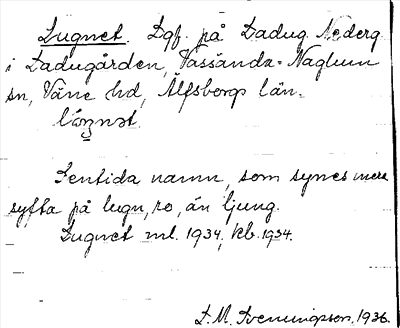 Lugnet. Lgf. på Ladug. Nederg.
i Ladugården, Vassända-Naglum
sn, Väne hd, Älfsborgs län.
Sentida namn, som synes mera
syfta på lugn, ro, än ljung.
Lugnet ml. 1934, kb. 1934.
D. M. Svenungsson, 1936.